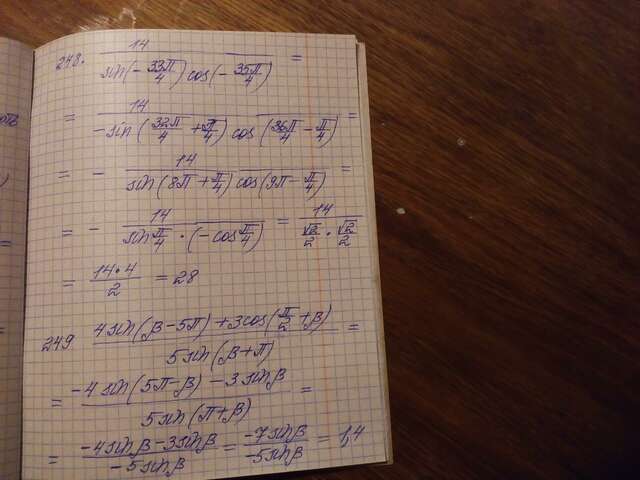 248. 14 / sin(-33π/4) cos(-35π/4) =
= 14 / -sin(32π/4 + π/4) cos(36π/4 - π/4) =
= - 14 / sin(8π + π/4) cos(9π - π/4) =
= - 14 / sin π/4 · (-cos π/4) = 14 / √2/2 · √2/2
= 14·4 / 2 = 28
249 4sin(β-5π) + 3cos(π/2 + β) / 5sin(β+π) =
= -4sin(5π-β) - 3sinβ / 5sin(π+β) =
= -4sinβ - 3sinβ / -5sinβ = -7sinβ / -5sinβ = 1,4